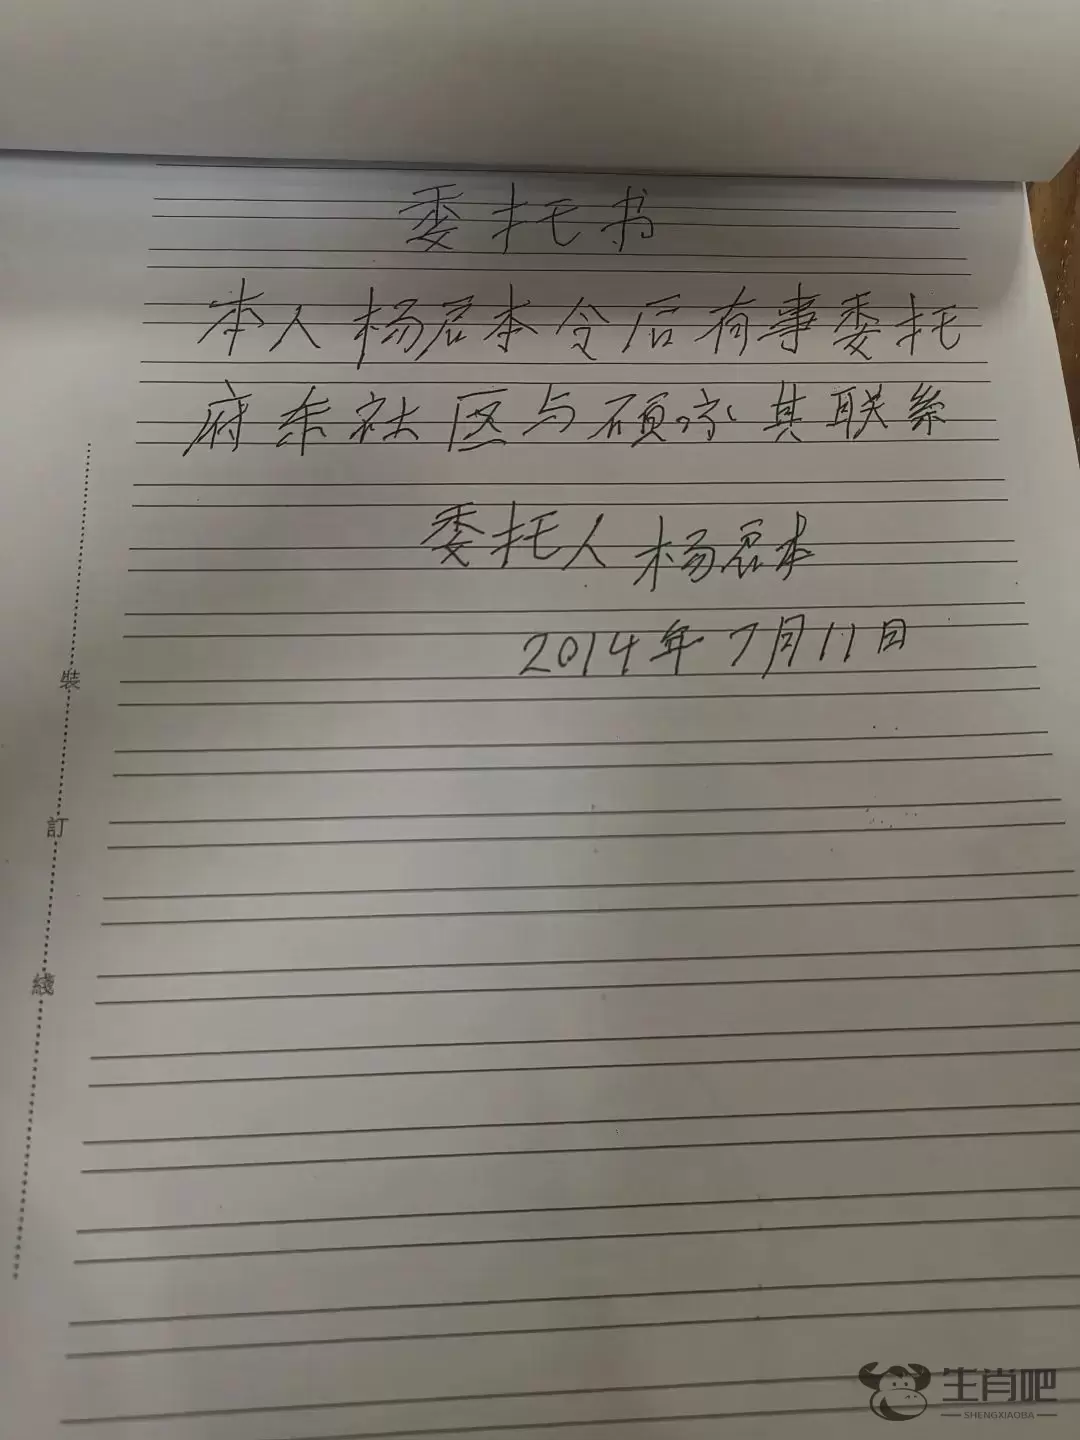 委托书
本人杨君本今后有事委托
府东社区与硕亦其联系
委托人 杨君本
2014年7月11日
裝
訂
綫
生肖吧
SHENGXIAOBA